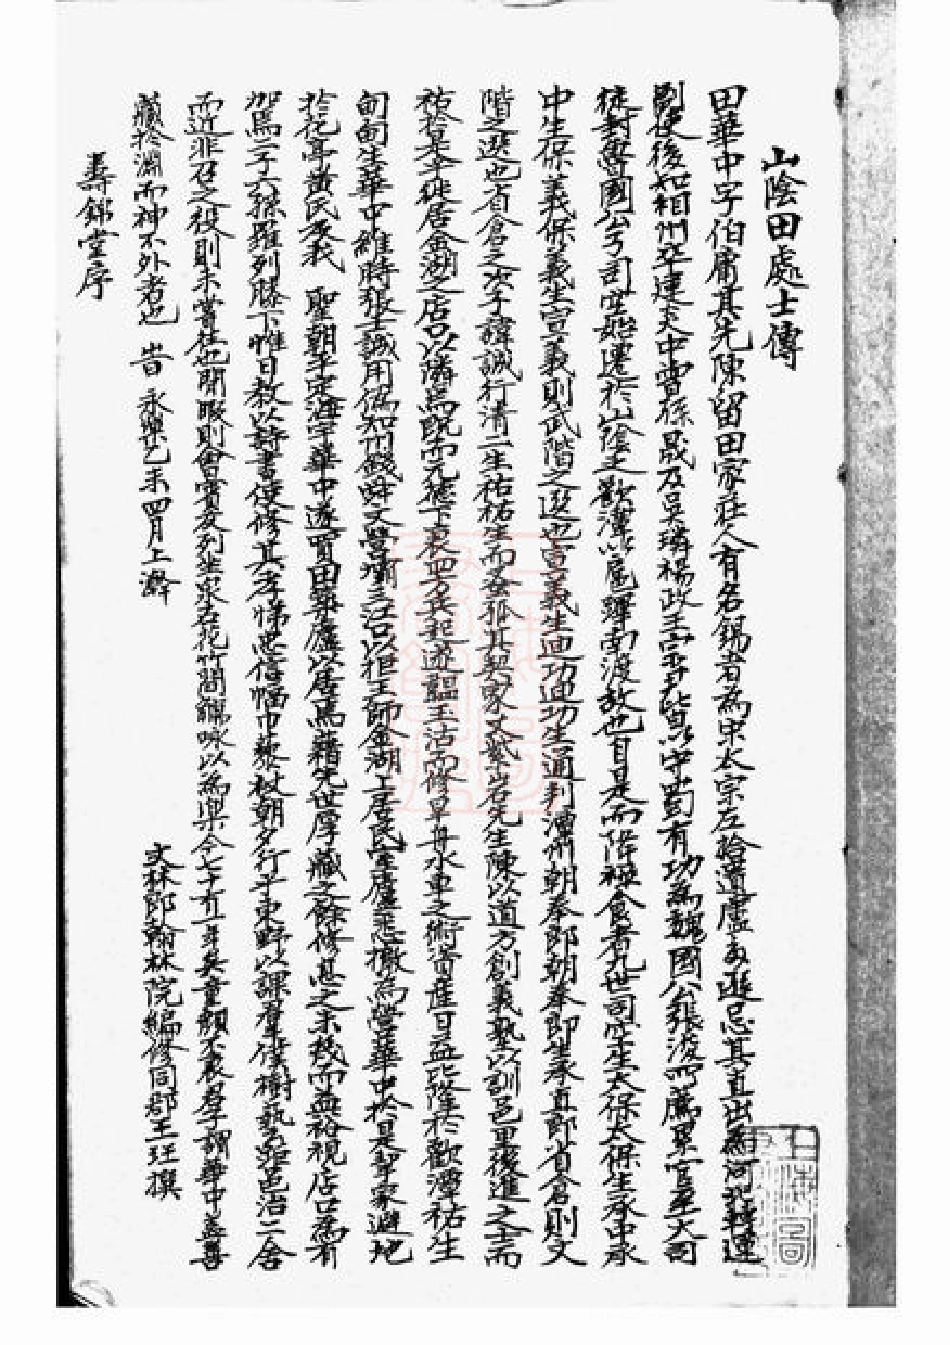 山陰田處士傳
田華中字伯庸其先陳留田家庄人有名錫者為宋太宗左拾遺盧多遜忌其直出為河北轉運
副使後知相州至建炎中曾孫晟及吳璘楊政王宗尹皆以中蜀有功為魏國公張浚所薦累官至大司
徒封魯國公子司空始遷於山陰之歡潭以扈蹕南渡故也自是而降祿食者九世司空生太保太保生承中承
中生保義保義生宣義則武階之選也宣義生迪功迪功生通判漕州朝奉郎朝奉郎生承直郎省倉則文
階之選也省倉之沙子諱誠行清二生祐祐生而蚤孤其契家丈紫岩先生陳以道方創義塾以訓邑里後進之士而
祐於是乎徙居金湖之店口以隣焉既而元德下衰四方兵起遂韞玉沽而修旱舟水車之術資產日益比隆於歡潭祐生
甸甸生華中維時張士誠用偽知州錢舜文營壩三江口以拒王師金湖上居民室廬悉撤為營華中於是挈家避地
於花亭黃氏及我 聖朝平定海宇華中遂買田築廬以居焉藉先世厚藏之餘修甚之未幾而無裕視店口為有
加焉二子六孫羅列膝下惟日教以詩書使修其孝悌忠信幅巾藜杖朝夕行乎東野以課羣僕樹藝邑距邑治二舍
而近非召之役則未嘗往也閒暇則會賓友列坐泉石花竹間觴咏以為樂今七十有一年矣童顏不衰君子謂華中蓋善
藏於淵而神不外者也 旹 永樂乙未四月上澣
文林郎翰林院編修同郡王玨撰
壽錦堂序